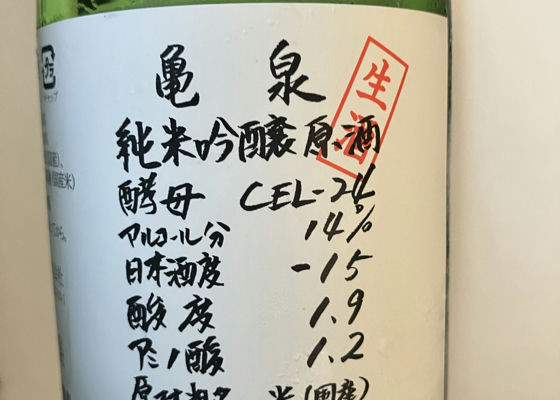 亀泉
生酒
純米吟醸原酒
酵母 CEL-24
アルコール分 14%
日本酒度 -15
酸度 1.9
アミノ酸 1.2
米(国産)